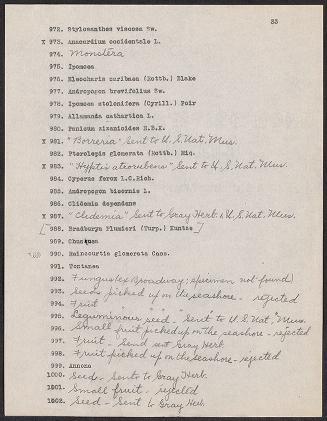 33
972. Stylosanthes viscosa Sw.
X 973. Anacardium occidentale L.
974. Monstera
975. Ipomoea
976. Eleocharis caribaea (Rottb.) Blake
977. Andropogon brevifolius Sw.
978. Ipomoea stolonifera (Cyrill.) Poir
979. Allamanda cathartica L.
980. Panicum zizanioides H.B.K.
X 981. "Borreria" Sent to U.S. Nat. Mus.
982. Pterolepis glomerata (Rottb.) Miq.
X 983. "Hyptis atrorubens" Sent to U.S. Nat. Mus.
984. Cyperus ferox L.C.Rich.
985. Andropogon bicornis L.
986. Clidemia dependens
X 987. "Clidemia" Sent to Gray Herb. & U.S. Nat. Mus.
[ 988. Bradburya Plumieri (Turp.) Kuntze ]
989. Chusquea
990. Mainocurtis glomerata Cass.
991. Pontanea
992. Fungus (ex Broadway; specimen not found)
993. Seeds picked up on the seashore - rejected
994. Fruit
995. "Leguminous seed" Sent to U.S. Nat. Mus.
996. Small fruit picked up on the seashore - rejected
997. Fruit - Send out Gray Herb
998. Fruit picked up on the seashore - rejected
999. Annona
1000. Seed - Sent to Gray Herb.
1001. Small fruit - rejected
1002. Seed - Sent to Gray Herb.